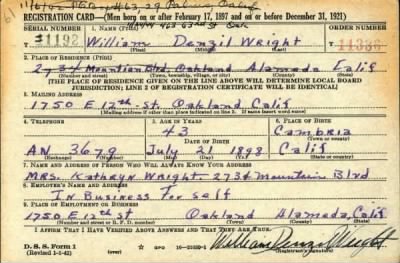 11/6/42
463, 29
Calif
REGISTRATION CARD—(Men born on or after February 17, 1897 and on or before December 31, 1921)
SERIAL NUMBER 1. NAME (Print) ORDER NUMBER
1192 William Denzil Wright 11336
(First) (Middle) (Last)
2. PLACE OF RESIDENCE (Print)
2734 Mountain Blvd. Oakland Alameda Calif
(Number and street) (Town, township, village, or city) (County) (State)
[THE PLACE OF RESIDENCE GIVEN ON THE LINE ABOVE WILL DETERMINE LOCAL BOARD
JURISDICTION; LINE 2 OF REGISTRATION CERTIFICATE WILL BE IDENTICAL]
3. MAILING ADDRESS
1750 E 12th St. Oakland Calif
(Mailing address if other than place indicated on line 2. If same insert word same)
4. TELEPHONE 5. AGE IN YEARS 6. PLACE OF BIRTH
43 Cambria
DATE OF BIRTH (Town or county)
AN. 3679 July 21 1898 Calif
(Exchange) (Number) (Mo.) (Day) (Yr.) (State or country)
7. NAME AND ADDRESS OF PERSON WHO WILL ALWAYS KNOW YOUR ADDRESS
MRS. Kathryn Wright. 2734 Mountain Blvd
8. EMPLOYER'S NAME AND ADDRESS
In Business For Self
9. PLACE OF EMPLOYMENT OR BUSINESS
1750 E 12th St Oakland Alameda, Calif
(Number and street or R. F. D. number) (Town) (County) (State)
I AFFIRM THAT I HAVE VERIFIED ABOVE ANSWERS AND THAT THEY ARE TRUE.
D. S. S. Form 1
(Revised 1-1-42) GPO William Denzil Wright
(Registrant's signature)